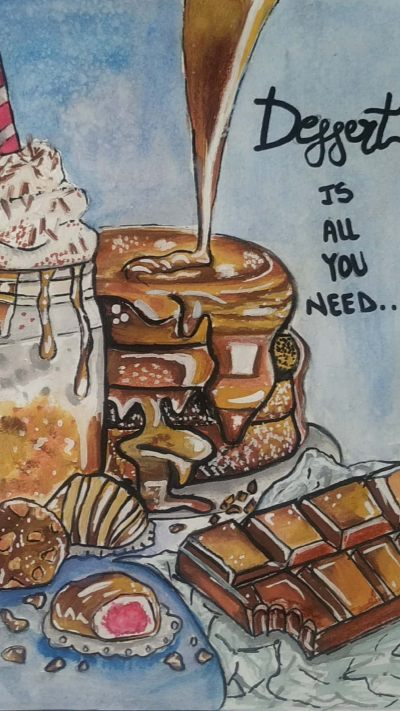 Dessert
IS
ALL
YOU
NEED..